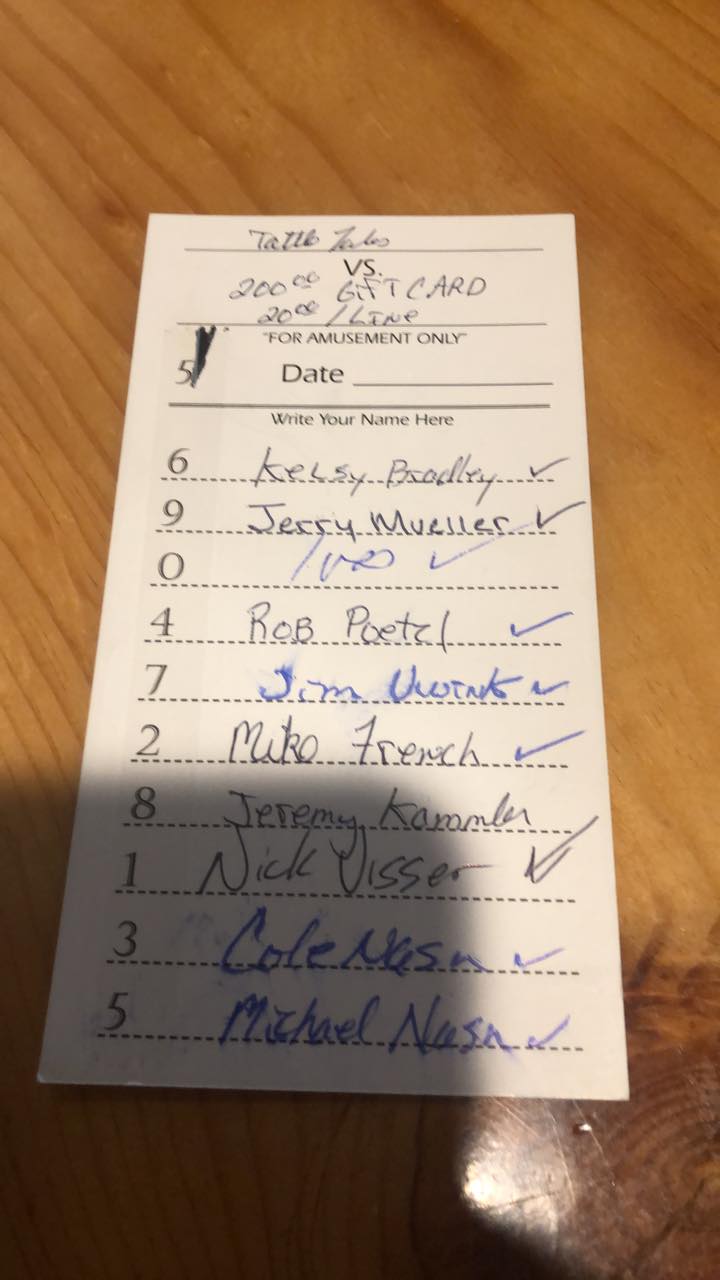 Tattle Tales
VS.
200.00 GIFT CARD
20.00 / LINE
"FOR AMUSEMENT ONLY"
5
Date
Write Your Name Here
6 Kelsy Bradley ✓
9 Jerry Mueller ✓
0 ✓
4 Rob Poetzl ✓
7 Jim ✓
2 Mike French ✓
8 Jeremy Kammler
1 Nick Visser ✓
3 Cole Nash ✓
5 Michael Nash ✓